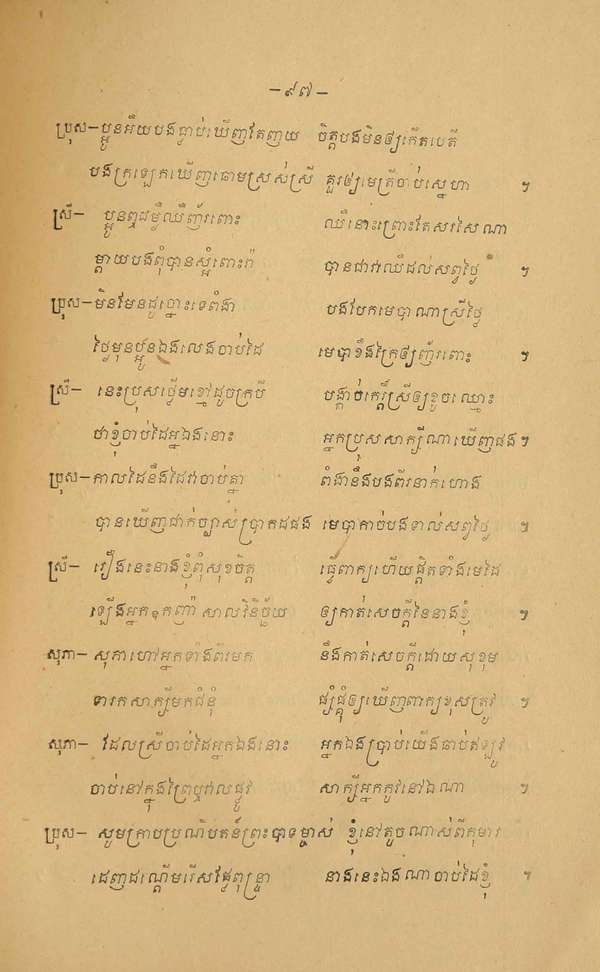 –៩៧–
ប្រុស–ប្អូនអើយបងធ្លាប់ឃើញតែញយ ចិត្តបងមិនឲ្យកើតបេតី
បងក្រឡេកឃើញឆោមស្រស់ស្រី គួរឲ្យមេត្រីចាប់ស្នេហា ៗ
ស្រី– ប្អូនឮជម្ងឺឈឺញ័រពោះ ឈឺនោះព្រោះតែសរសៃណា
ម្តាយបងពុំបានស្អំពោះវ៉ា បានជាវាឈឺដល់សព្វថ្ងៃ ៗ
ប្រុស–មិនមែនដូច្នោះទេពំងា បងបែកមេបាណាស្រីថ្លៃ
ថ្ងៃមុនប្អូនឯងលេងចាប់ដៃ មេបាខឹងក្រៃឲ្យញ័រពោះ ៗ
ស្រី– នេះប្រុសធ្វើមខ្មៅដូចក្របី បង្កាច់កេរ្តិ៍ស្រីឲ្យខូចឈ្មោះ
ថាខ្ញុំចាប់ដៃអ្នកឯងនោះ អ្នកប្រុសសាក្សីណាឃើញផង ៗ
ប្រុស–កាលដៃនឹងដៃវាចាប់គ្នា ពំងានឹងបងពីរនាក់ហោង
បានឃើញជាក់ច្បាស់ប្រាកដផង មេបាកាច់បងទាល់សព្វថ្ងៃ ៗ
ស្រី– រឿងនេះនាងខ្ញុំពុំសុខចិត្ត ធ្វើពាក្យហើយផ្តិតទាំងមេដៃ
ឡើងអ្នកឧកញ៉ា សាលវិនិច្ឆ័យ ឲ្យកាត់សេចក្តីនៃនាងខ្ញុំ ៗ
សុភា– សុភាហៅអ្នកទាំងពីរមក នឹងកាត់សេចក្តីដោយសុខុម
ទារកសាក្សីមកជំនុំ ផ្សំផ្គុំឲ្យឃើញពាក្យខុសត្រូវ ៗ
សុភា– ដែលស្រីចាប់ដៃអ្នកឯងនោះ អ្នកឯងប្រាប់យើងឆាប់ឥឡូវ
ចាប់នៅក្នុងព្រៃឬវាលផ្លូវ សាក្សីអ្នកកូវនៅឯណា ៗ
ប្រុស– សូមក្រាបប្រណិបតន៍ព្រះបាទម្ចាស់ ខ្ញុំនៅតូចណាស់ពីកុមារ
ដេញដណ្តើមរើសផ្លែពុន្ទ្រា នាងនេះឯងណាចាប់ដៃខ្ញុំ ៗ